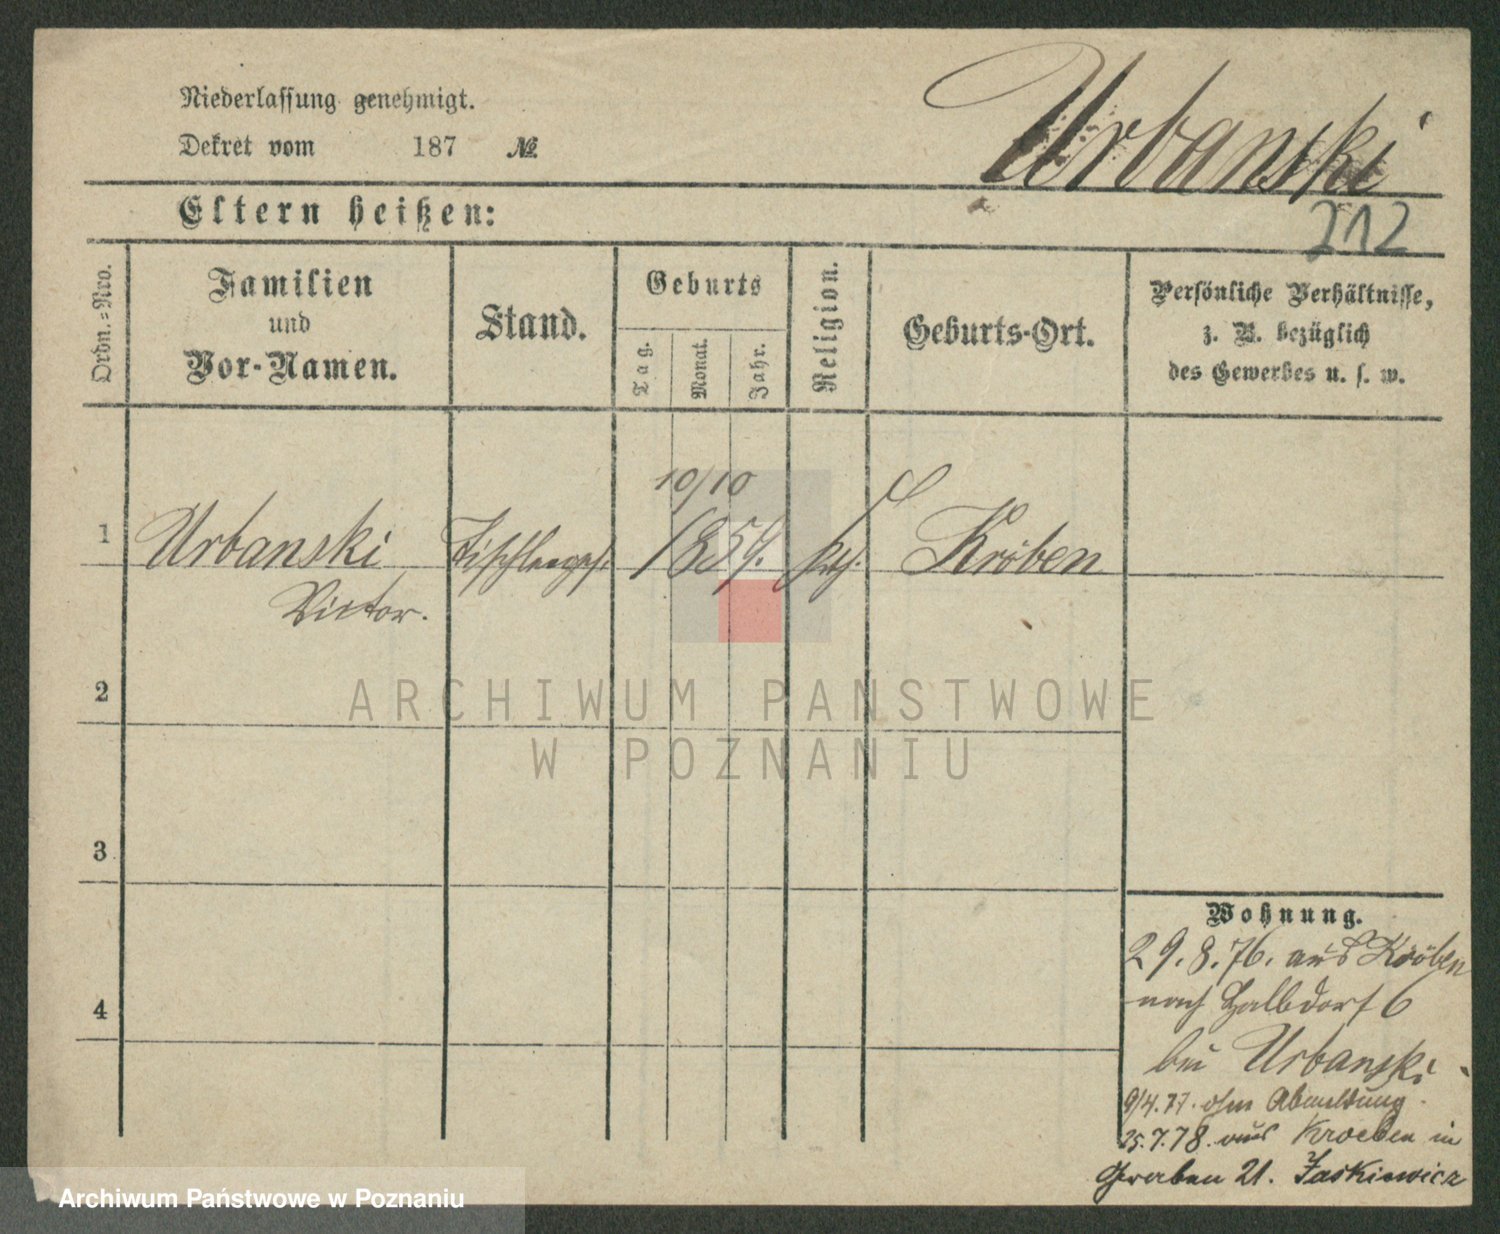 Niederlassung genehmigt.
Dekret vom 187 №
Urbanski
212
Eltern heißen:
Ordn.=Nro.
Familien
und
Vor-Namen.
Stand.
Geburts
Tag.
Monat.
Jahr.
Religion.
Geburts-Ort.
Persönliche Verhältnisse,
z. B. bezüglich
des Gewerbes u. s. w.
10/10
1 Urbanski Tischlerges. 1859. kath. Kröben
Victor.
2
3
4
Wohnung.
29.8.76. aus Kröben
nach Halbdorf 6
bei Urbanski
9/4.77. ohne Abmeldung.
25.7.78. aus Kroeben in
Graben 21. Jaskiewicz
ARCHIWUM PAŃSTWOWE
W POZNANIU
Archiwum Państwowe w Poznaniu